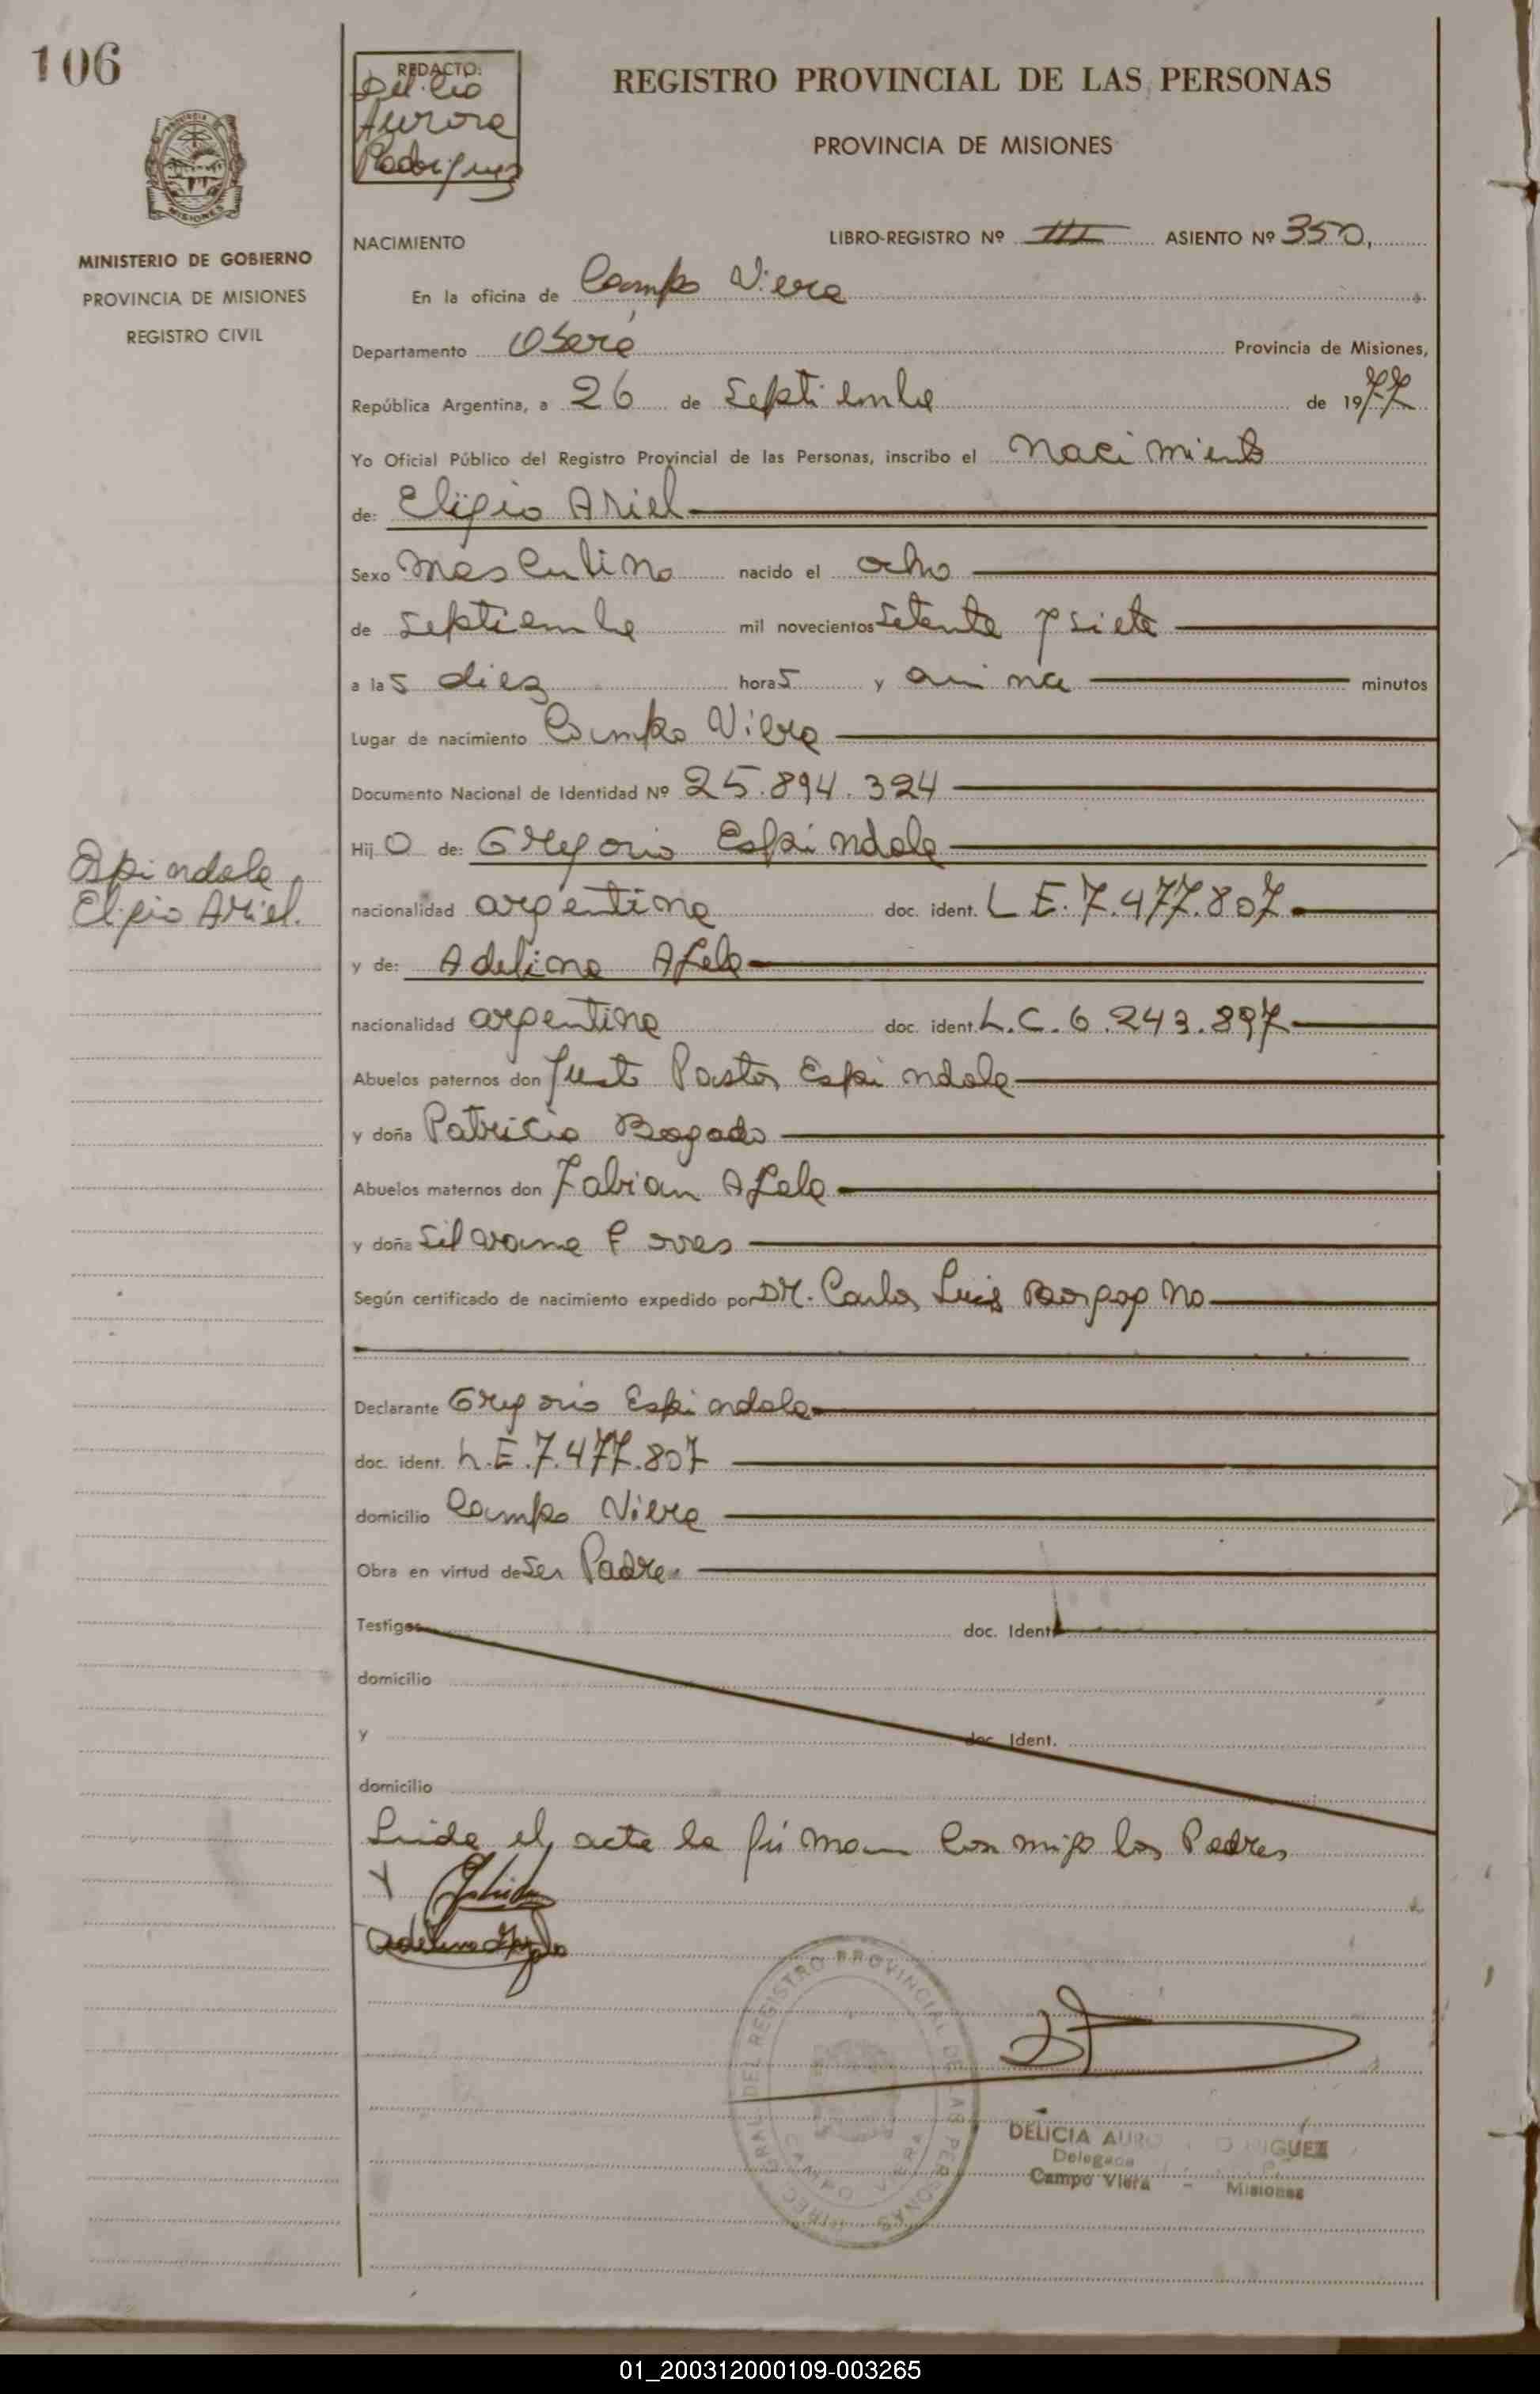 106
REDACTO:
Delicia
Aurora
Rodriguez
REGISTRO PROVINCIAL DE LAS PERSONAS
PROVINCIA DE MISIONES
MISIONES
MINISTERIO DE GOBIERNO
PROVINCIA DE MISIONES
REGISTRO CIVIL
NACIMIENTO LIBRO-REGISTRO Nº III ASIENTO Nº 350,
En la oficina de Campo Viera
Departamento Oberá Provincia de Misiones,
República Argentina, a 26 de Septiembre de 1977
Yo Oficial Público del Registro Provincial de las Personas, inscribo el Nacimiento
de: Eligio Ariel
Sexo masculino nacido el ocho
de Septiembre mil novecientos Setenta y siete
a las diez horas y minutos
Lugar de nacimiento Campo Viera
Documento Nacional de Identidad Nº 25.894.324
Hijo de: Gregorio Espindola
Espindola
Eligio Ariel.
nacionalidad argentina doc. ident. L E. 7.477.807
y de: Adelina
nacionalidad argentina doc. ident. L.C. 6.243.897
Abuelos paternos don Justo Pastor Espindola
y doña Patricia Bogado
Abuelos maternos don Fabian
y doña Silvana
Según certificado de nacimiento expedido por Dr. Carlos Luis
Declarante Gregorio Espindola
doc. ident. L.E. 7.477.807
domicilio Campo Viera
Obra en virtud de Ser Padre
Testigos doc. Ident.
domicilio
y doc. Ident.
domicilio
Leida el acta la firman conmigo los Padres
y
Adelina
DIREC. GRAL DEL REGISTRO PROVINCIAL DE LAS PERSONAS
CAMPO VIERA
DELICIA AURO
Delegada
Campo Viera - Misiones
01_200312000109-003265